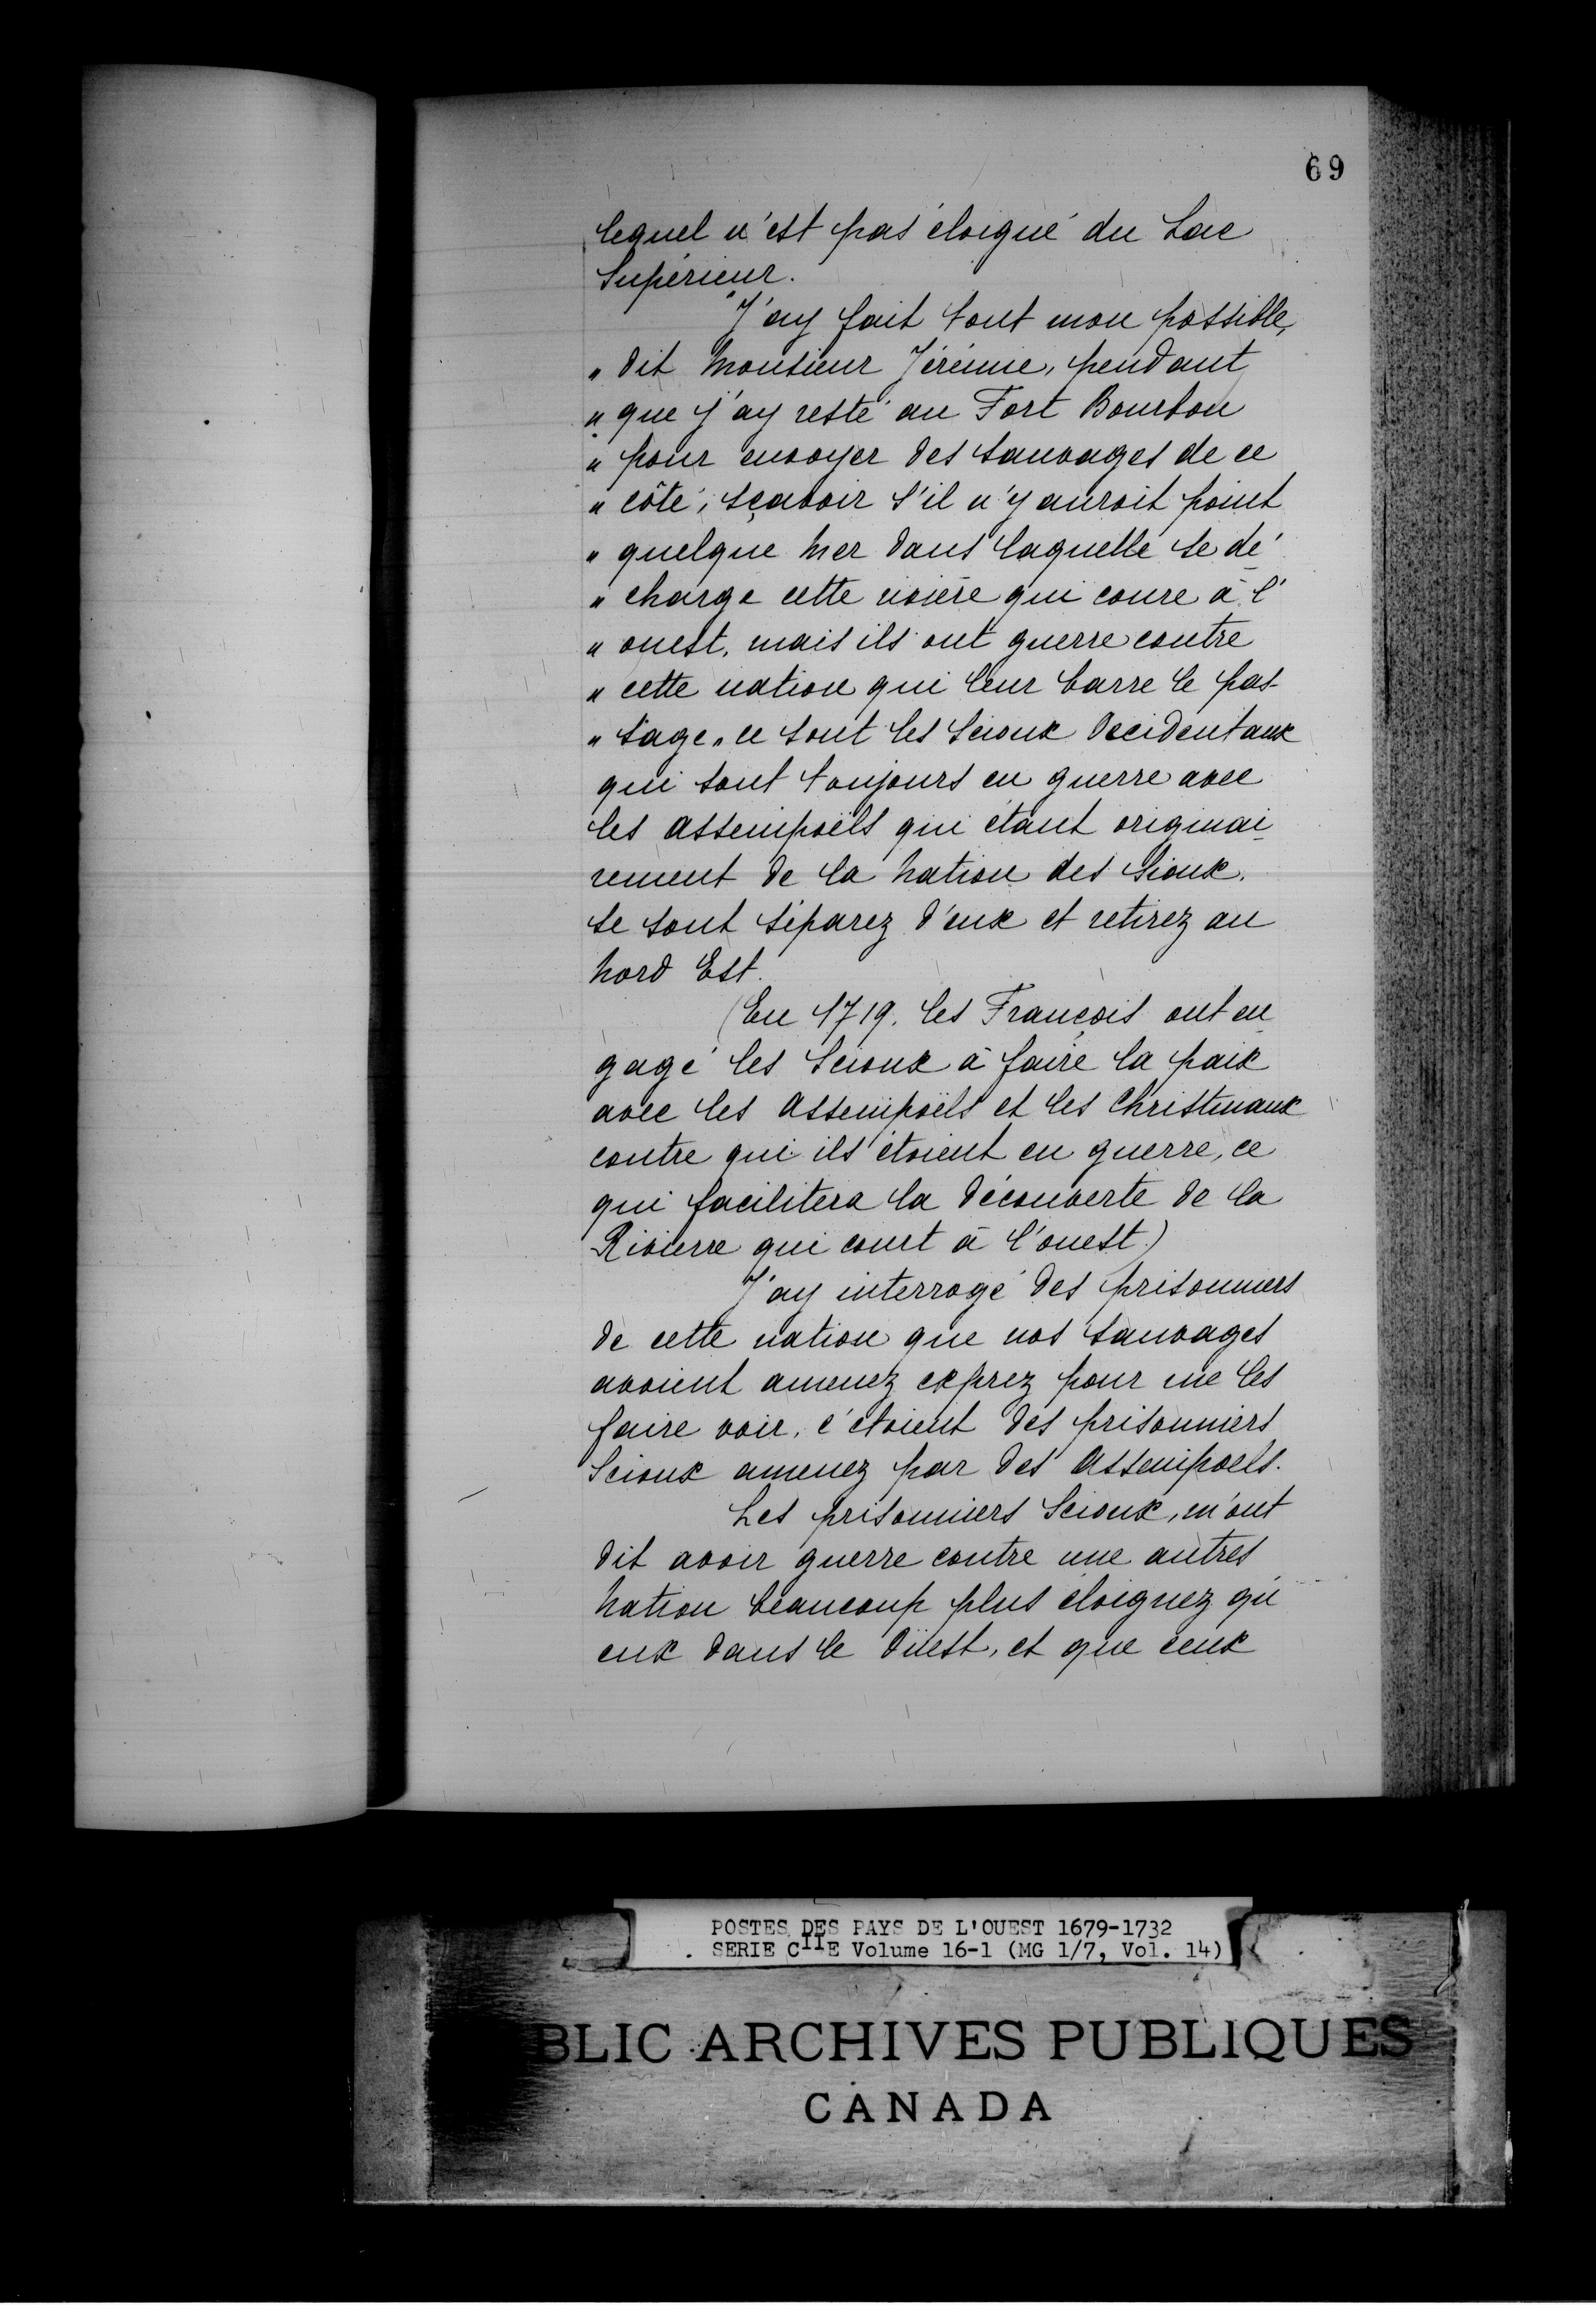 69
lequel n'est pas éloigné du Lac
Supérieur.
"J'ay fait tout mon possible,
" dit Monsieur Jérémie, pendant
" que j'ay resté au Fort Bourbon
" pour envoyer des sauvages de ce
" côté, sçavoir s'il n'y auroit point
" quelque Mer dans laquelle se dé-
" charge cette rivière qui coure à l'
" ouest, mais ils ont guerre contre
" cette nation qui leur barre le pas-
" sage" ce sont les Scioux Occidentaux
qui sont toujours en guerre avec
les Assenipoëls qui étant originai-
rement de la Nation des Sioux,
se sont séparez d'eux et retirez au
Nord Est.
(En 1719. les François ont en-
gagé les Scioux à faire la paix
avec les Assenipoëls et les Christinaux
contre qui ils étoient en guerre, ce
qui facilitera la découverte de la
Rivierre qui court à l'ouest.)
J'ay interrogé des prisonniers
de cette nation que nos sauvages
avoient amenez exprez pour me les
faire voir, c'etoient des prisonniers
Scioux amenez par des Assenipoels.
Les prisonniers Scioux, m'ont
dit avoir guerre contre une autres
Nation beaucoup plus éloignez qu'
eux dans le Oüest, et que ceux
POSTES DES PAYS DE L'OUEST 1679-1732
SERIE CIIE Volume 16-1 (MG 1/7, Vol. 14)
BLIC ARCHIVES PUBLIQUES
CANADA